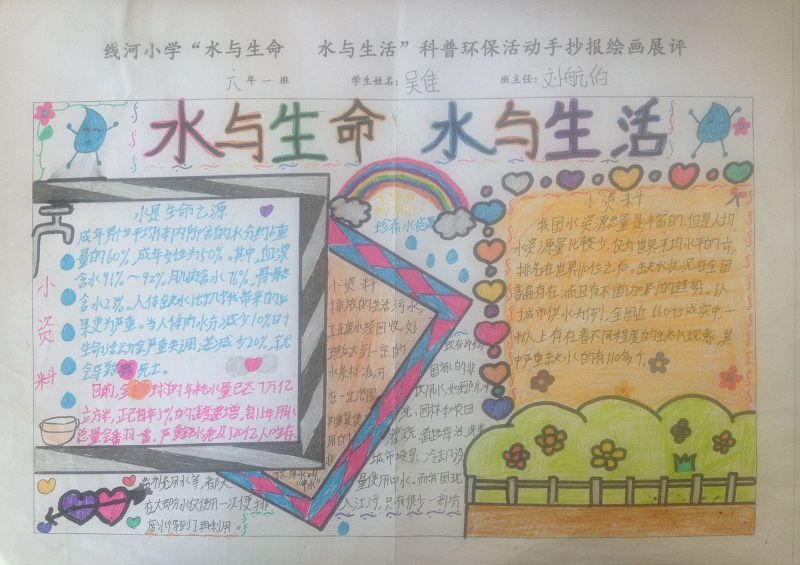 线河小学“水与生命 水与生活”科普环保活动手抄报绘画展评
六年一班 学生姓名:吴佳 班主任:刘航伯
水与生命 水与生活
水是生命之源
成年男性平均体内所含的水分约占重
量的60%,成年女性为50%。其中,血液
含水91%~92%,肌肉含水76%,骨骼
含水23%。人体缺水比饥饿带来的后
果更为严重。当人体内水分减少10%时
生命活动会严重失调,若减少20%,就
会导致死亡。
目前,全球的年耗水量已达7万亿
立方米,正已每年5%的速度递增,每15年用水
总量会翻一番,严重缺水危及20亿人生存
小
资
料
珍希水资源
小资料
排放的生活污水,
工业废水经回收,处
理后达到一定的
水质标准,可
在一定范围
内重复使
用的
非
饮用水叫
“中水”
饮用水,如厕所冲
洗、园林和农田
灌溉、道路保洁、洗车
城市喷泉、冷却设
量使用中水。而我国现
入江河,只有很少一部分
备补充用水等,都大
在大部分水仅使用一次便排
废水得到了再利用。
小资料
我国水资源总量是丰富的,但是人均
水资源量比较少,仅为世界平均水平的
排名在世界110位之后。缺水状况在全国
普遍存在,而且有不断加剧的趋势。以
城市供水为例,全国近660个城实中一
半以上存在着不同程度的缺水现象,其
中严重缺水的有110多个。